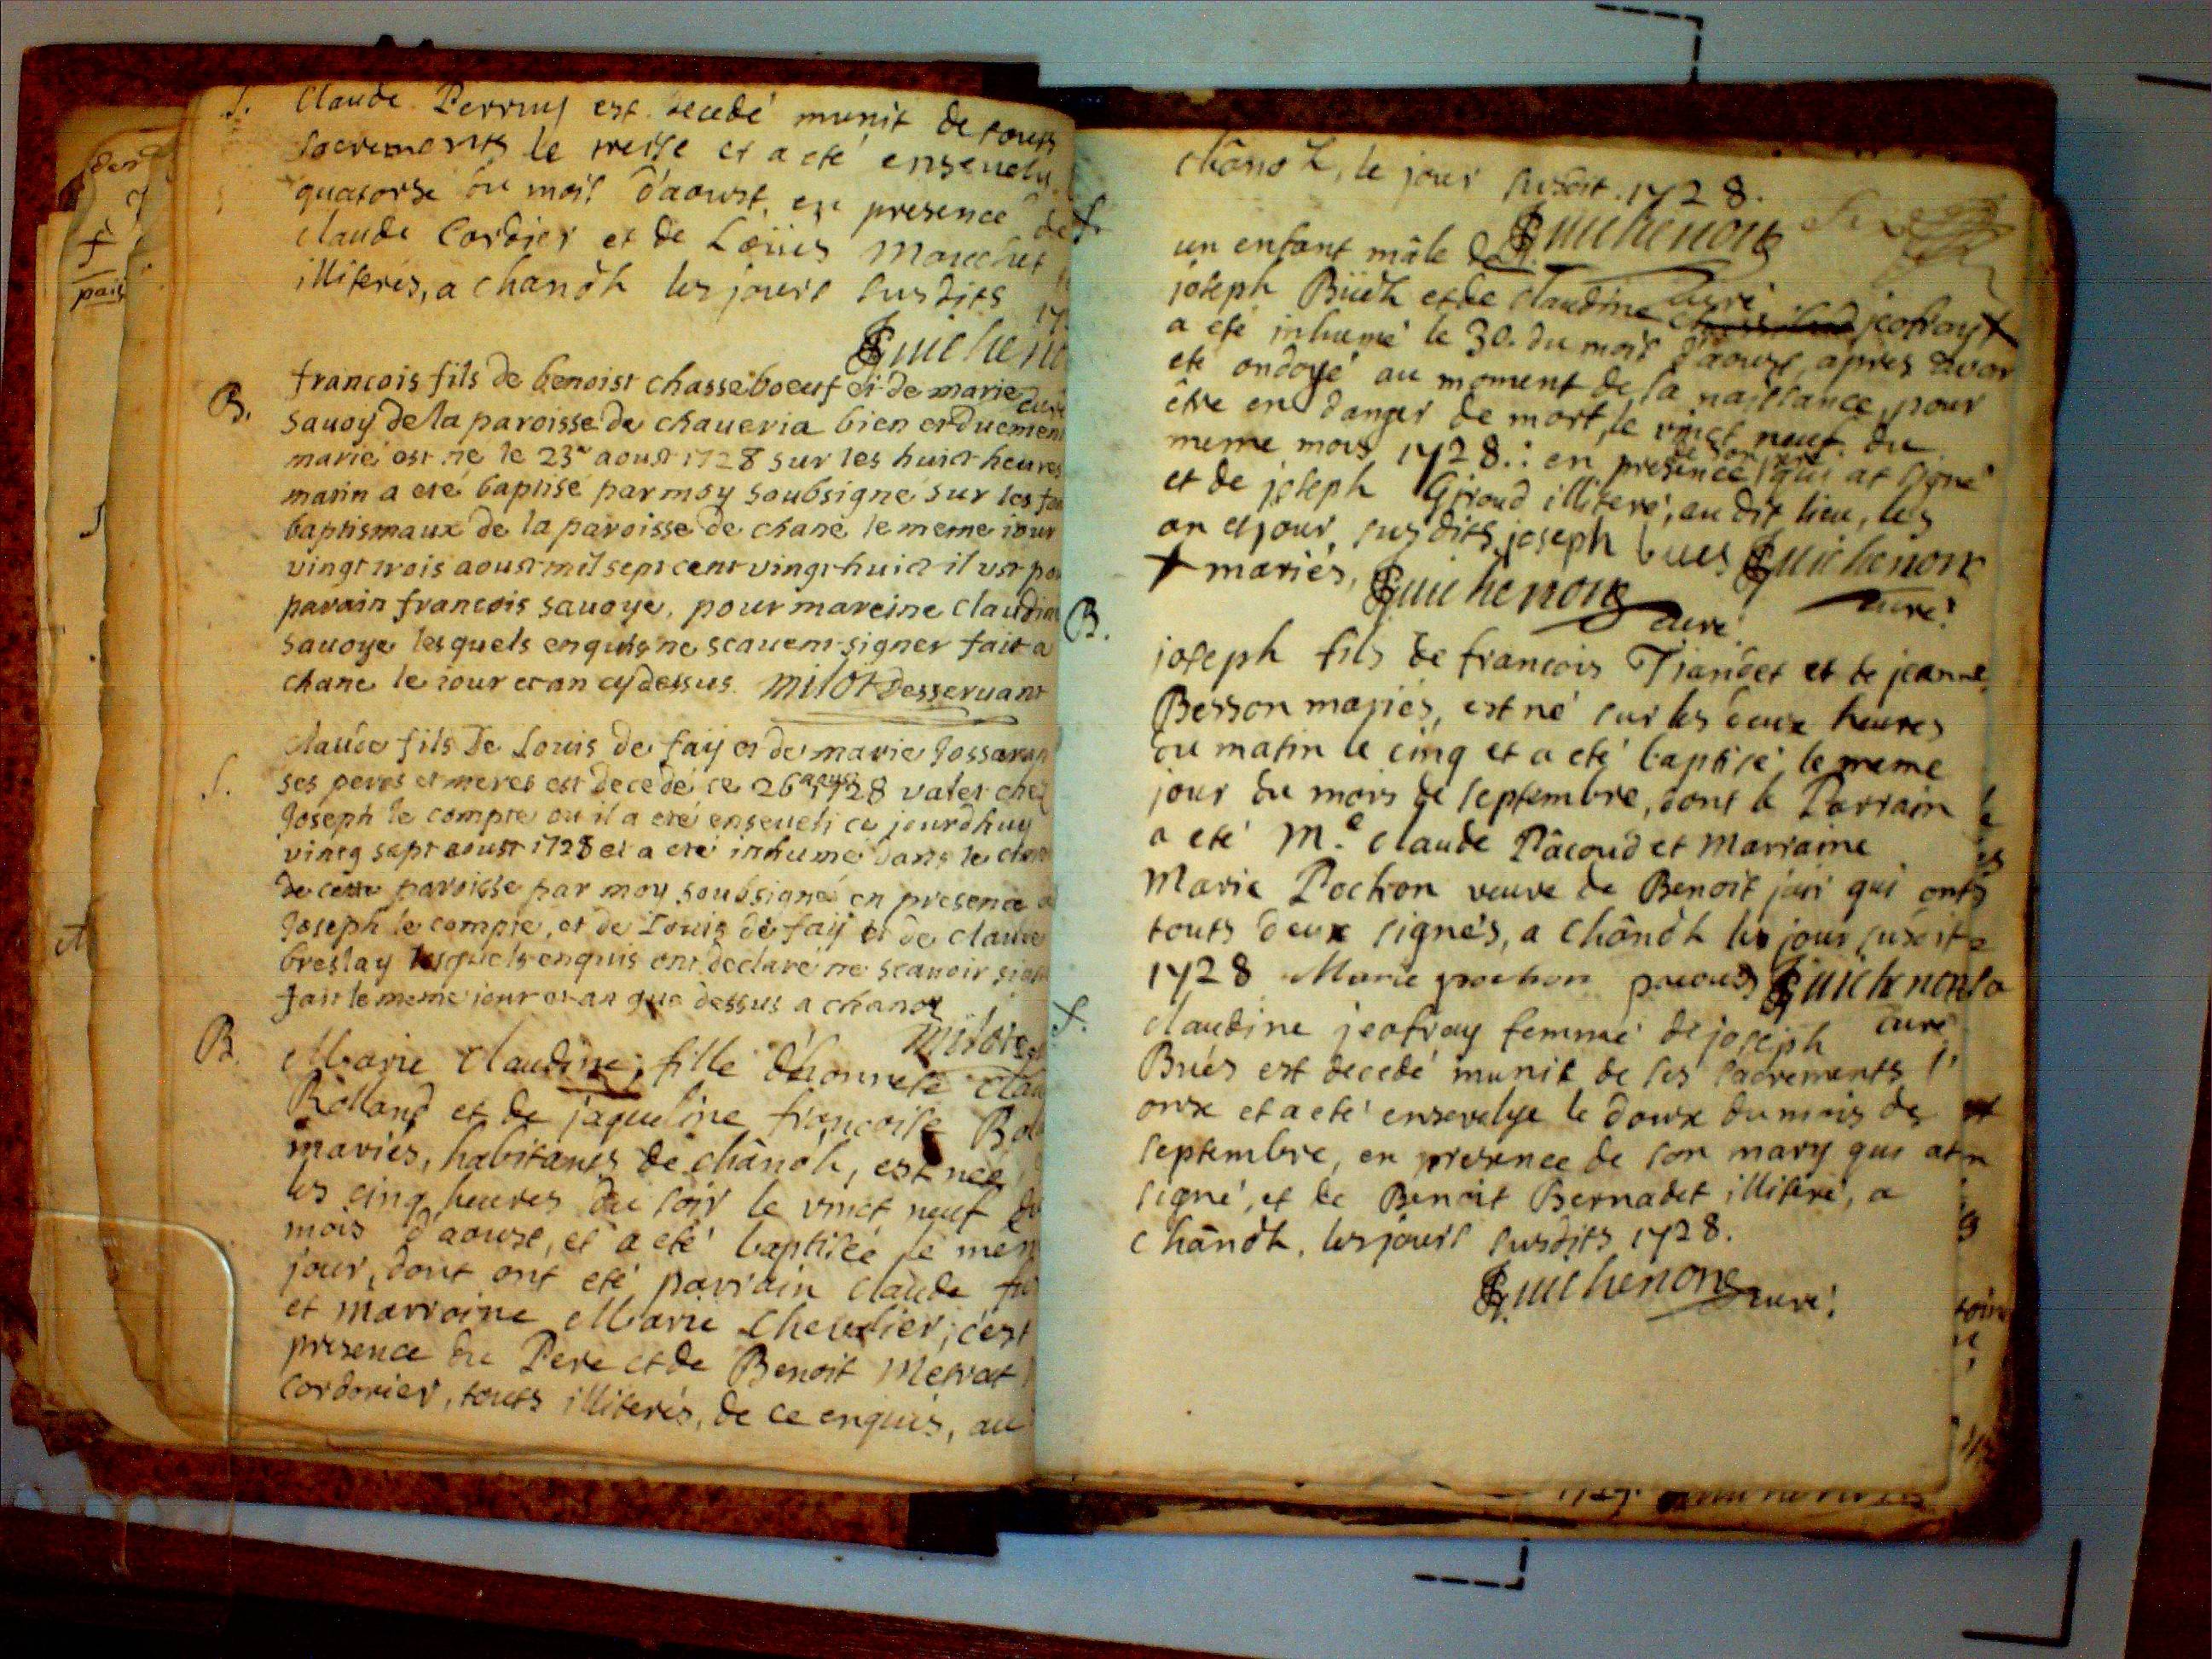 S. Claude Perruy est decedé munit de touts
sacrements le treise et a eté ensevely
quatorse du mois d'aoust, en presence de
claude Cordier et de Loüis Mouchet
illiterés, a chanoh les jours susdits
Guicheno
curé
B. francois fils de benoist chasseboeuf et de marie
sauoy de la paroisse de chaueria bien et duement
marié est ne le 23e aoust 1728 sur les huict heures
matin a eté baptisé par moy soubsigné sur les fon
baptismaux de la paroisse de chane le meme iour
vingt trois aoust mil sept cent vingt huict il ust pou
parain francois sauoye, pour mareine claudin
sauoye lesquels enquis ne scauent signer fait a
chane le iour et an cy dessus milot Desseruant
S. claude fils De Louis de fay et de marie Jossaran
ses peres et meres est decedé ce 26 aoust 1728 valet chez
Joseph le compte ou il a eté enseueli ce jourdhuy
vincq sept aoust 1728 et a eté inhumé dans le cime
de cette paroisse par moy soubsigné en presence d
Joseph le compte, et de Louis de fay et de claude
breslay lesquels enquis ont declaré ne scauoir sign
fait le meme iour et an que dessus a chanoz
milot
B. Marie Claudine, fille d'honneste Clau
Rolland et de jaqueline françoise Bol
mariés, habitants de chânoh, est née
les cinq heures du soir le vinct neuf du
mois d'aoust, et a eté baptisée le mem
jour, dont ont eté parrain claude
et marraine Marie Chevalier; c'est
presence du Pere et de Benoit Metrat
cordonier, touts illiterés, de ce enquis, au
chânoh, le jour susdit. 1728.
Guichenon
curé
S. un enfant mâle de
joseph Büéh et de claudine jeofray +
a eté inhumé le 30. du mois d'aoust, apres avoir
eté ondoyé au moment de la naissance, pour
être en danger de mort, le vinct neuf du
meme mois 1728.: en presence de son pere qui at signé
et de joseph Giroud illiteré, au dit lieu, les
an et jour, susdits, joseph bues Guichenon
+ mariés, Guichenon curé curé
B. joseph fils de francois Tiandet et de jeanne
Besson mariés, est né sur les deux heures
du matin le cinq et a eté baptisé, le meme
jour du mois de septembre, dont le Parrain
a eté Me. claude Pâcoud et Marraine
Marie Pochon veuve de Benoit jari qui onts
touts deux signés, a Chânoh les jour susdits
1728 Marie pochon pacoud Guichenon
curé
S. claudine jeofray femme de joseph
Bués est decedé munit de ses sacrements l'
onse et a eté ensevelye le douse du mois de
septembre, en presence de son mary qui at
signé, et de Benoit Bernadet illiteré, a
Chânoh, les jours susdits 1728.
Guichenon curé